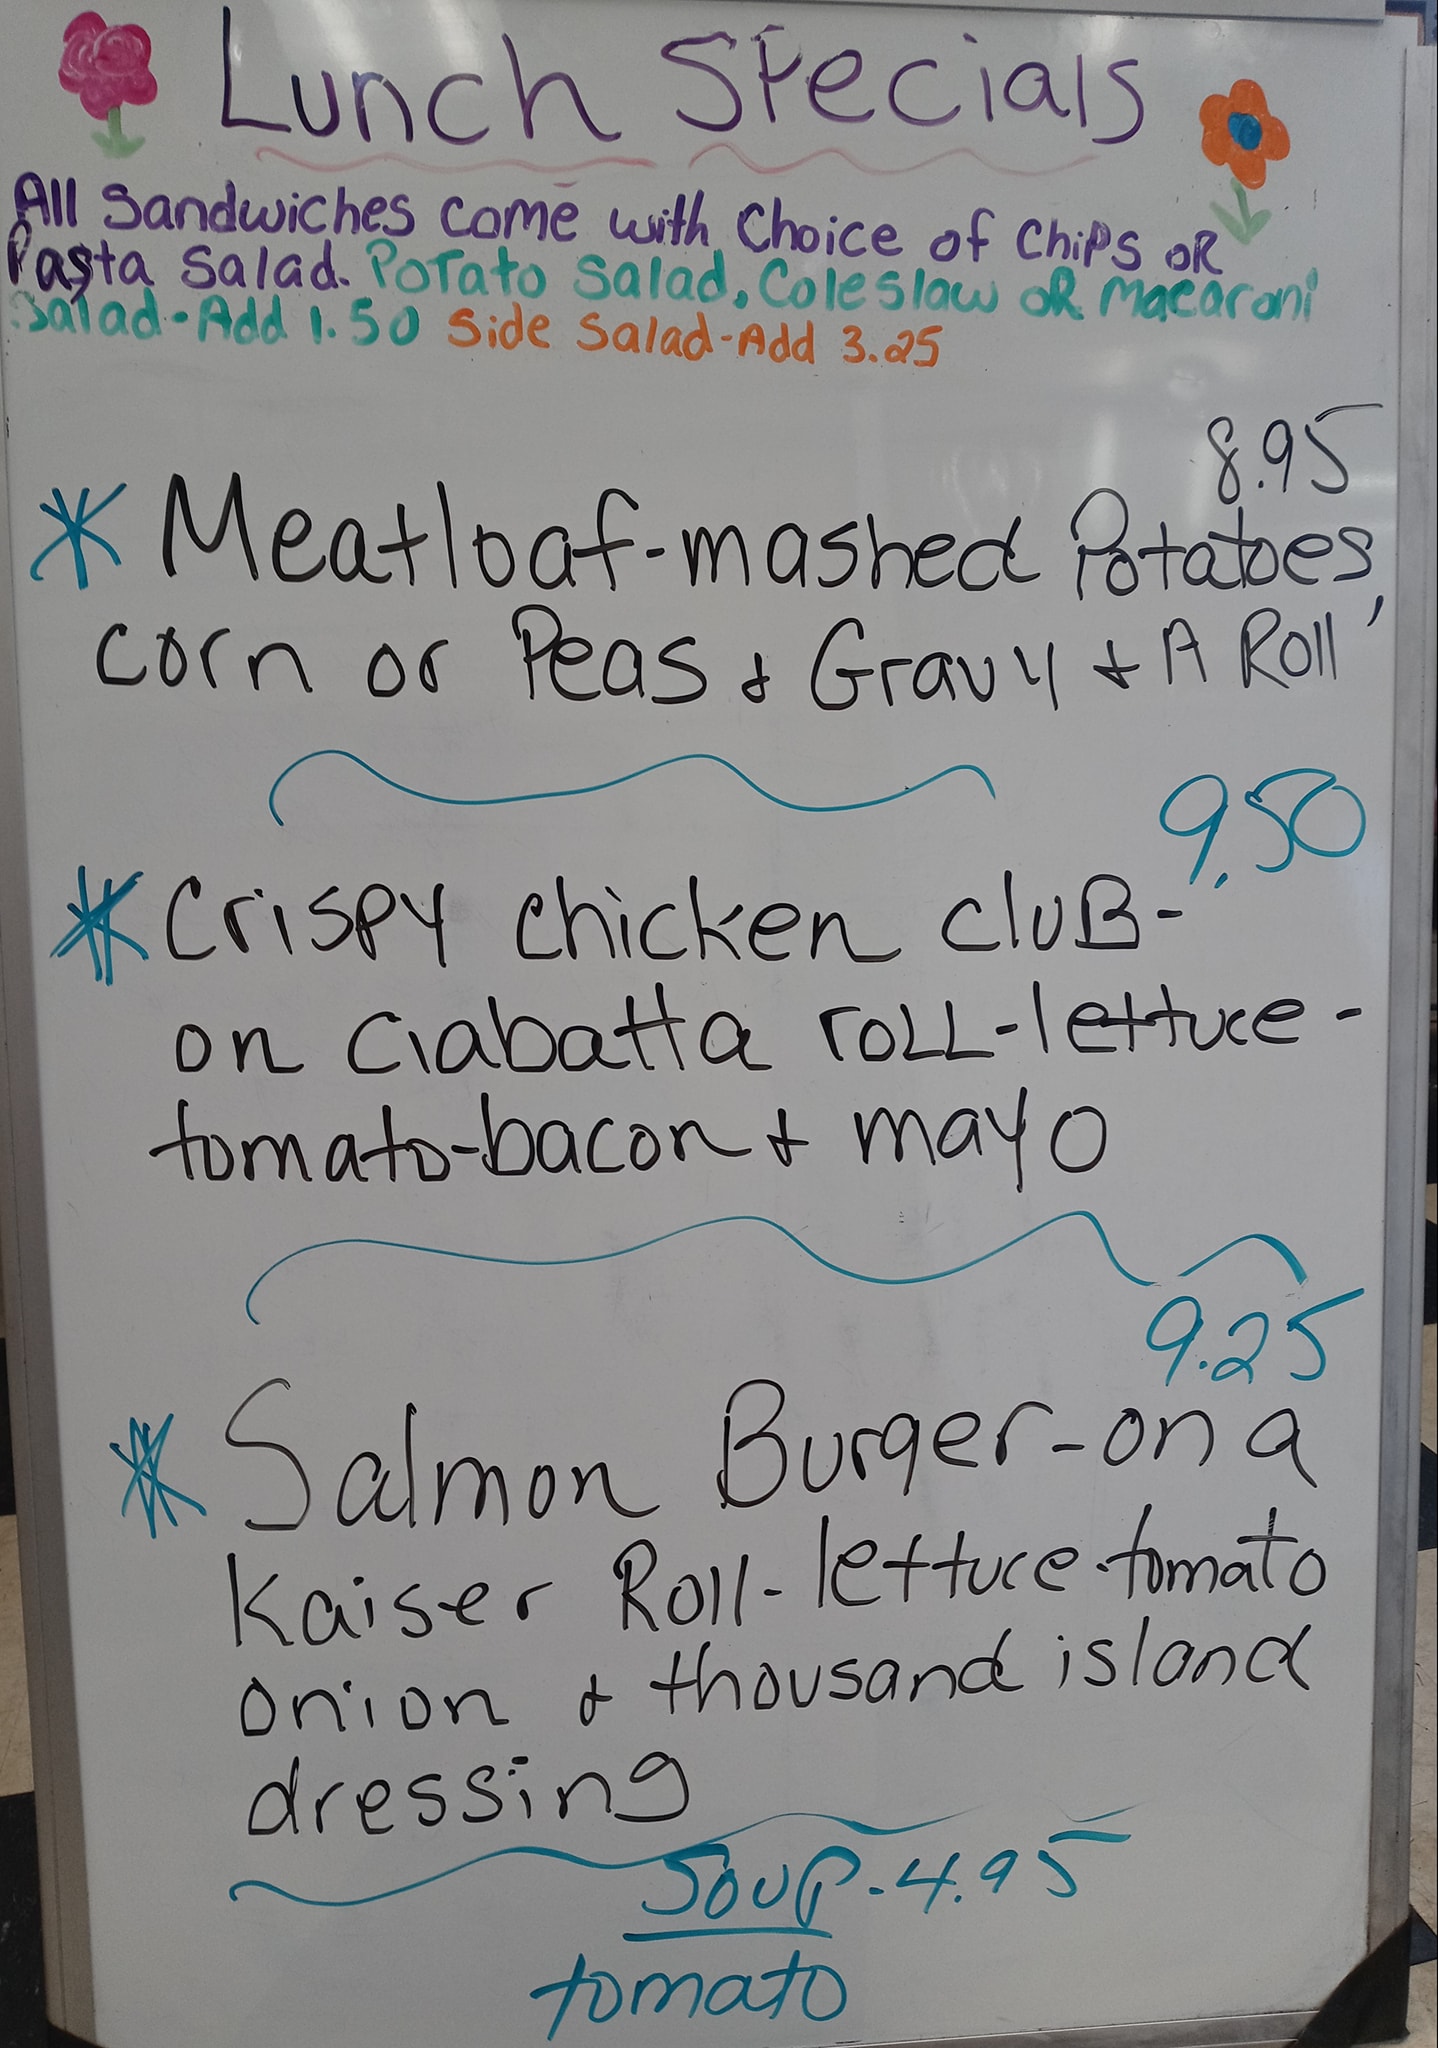 Lunch Specials
All Sandwiches come with Choice of Chips OR
Pasta Salad. Potato Salad, Coleslaw OR Macaroni
Salad-Add 1.50 Side Salad-Add 3.25
8.95
* Meatloaf-mashed Potatoes,
corn or Peas & Gravy & A Roll
9.50
* Crispy chicken cluB-
on ciabatta roLL-lettuce-
tomato-bacon & mayo
9.25
* Salmon Burger-on a
Kaiser Roll-lettuce-tomato
onion & thousand island
dressing
Soup-4.95
tomato